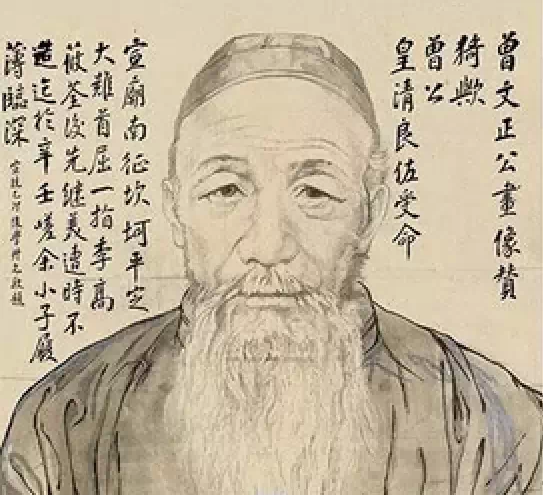 曾文正公畫像贊
猗歟
曾公
皇清良佐受命
宣廟南征坎坷平定
大難首屈一指李高
筱荃後先継美遭時不
造迄於辛壬嗟余小子履
薄臨深
後學 題